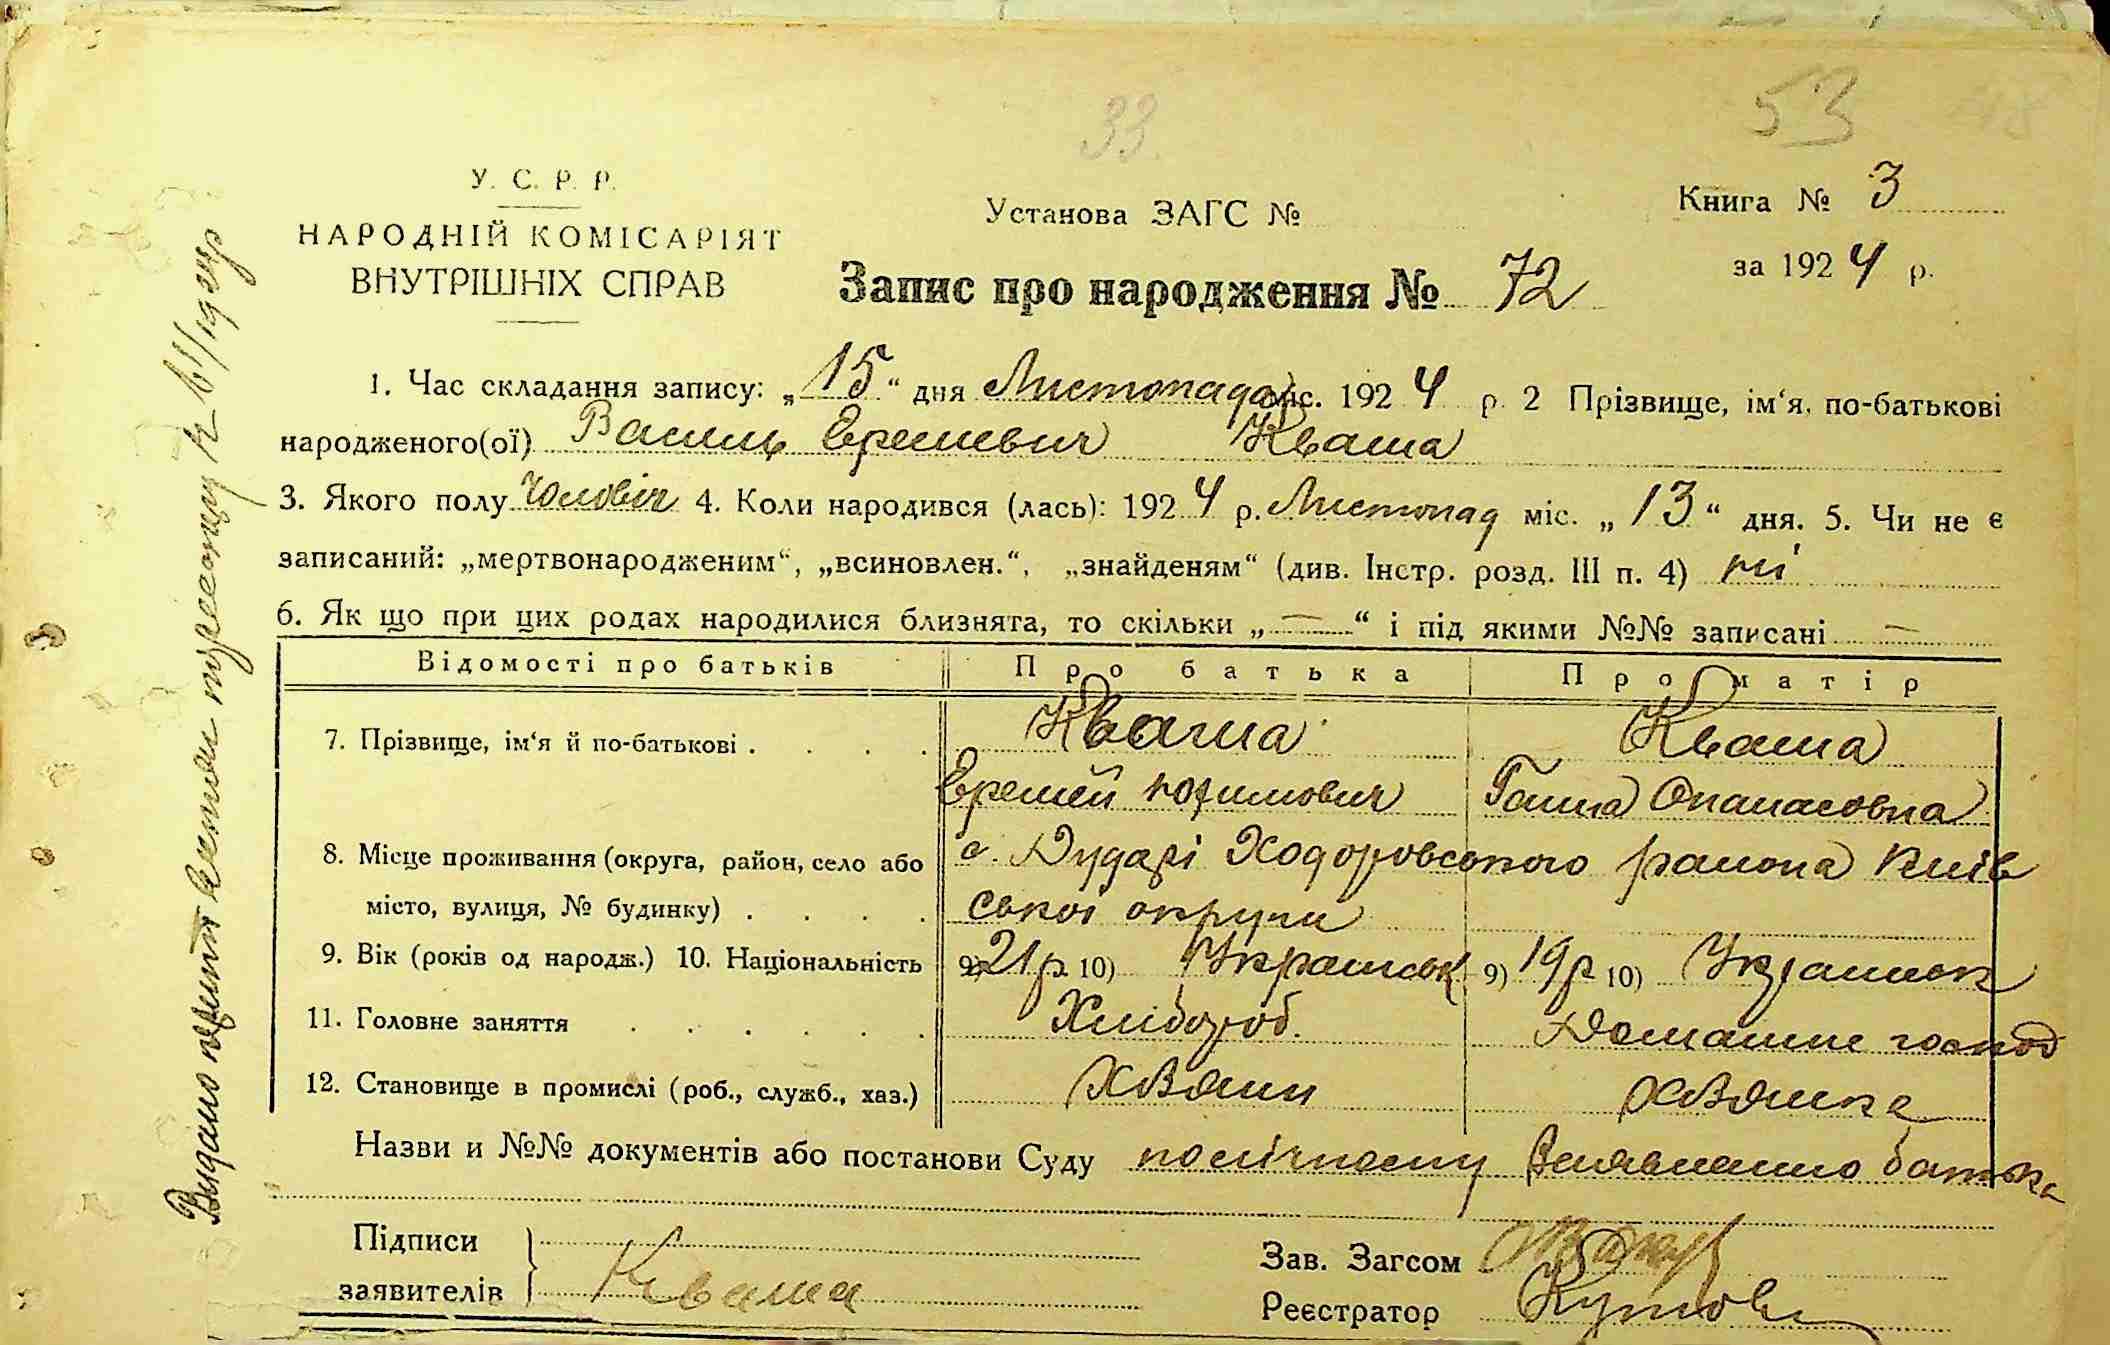 33
53
У. С. Р. Р.
НАРОДНІЙ КОМІСАРІЯТ
ВНУТРІШНІХ СПРАВ
Установа ЗАГС №
Книга № 3
за 1924 р.
Запис про народження № 72
1. Час складання запису: „15“ дня Листопада міс. 1924 р. 2 Прізвище, ім‘я, по-батькові
народженого(ої) Василь Еремевич Кваша
3. Якого полу Чоловіч 4. Коли народився (лась): 1924 р. Листопад міс. „13“ дня. 5. Чи не є
записаний: „мертвонародженим“, „всиновлен.“, „знайденям“ (див. Інстр. розд. III п. 4) ні
6. Як що при цих родах народилися близнята, то скільки „—“ і під якими №№ записані —
Відомості про батьків Про батька Про матір
7. Прізвище, ім‘я й по-батькові . . . . Кваша Кваша
Еремей Юхимович Ганна Опанасовна
8. Місце проживання (округа, район, село або с. Дударі Ходоровського района Київ
місто, вулиця, № будинку) . . . . ської округи
9. Вік (років од народж.) 10. Національність 9) 21 р 10) Украінськ 9) 19 р 10) Украінськ
11. Головне заняття . . . . . Хлібороб. Домашнє господ
12. Становище в промислі (роб., служб., хаз.) Хазяин Хазяика
Назви и №№ документів або постанови Суду батька
Підписи
заявителів Кваша
Зав. Загсом
Реєстратор
Видано